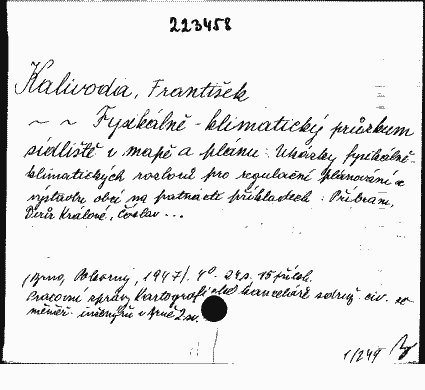 223458
Kalivoda, František
~ ~ Fysikálně-klimatický průzkum
sídliště v mapě a plánu: Ukázky fysikálně-
klimatických rozborů pro regulační plánování a
výstavbu obcí na patnácti příkladech: Příbram,
Dvůr Králové, Čáslav ...
(Brno, Pokorný, 1947). 4°. 24 s. 15 příloh.
Pracovní zprávy Kartografické kanceláře sdruž. civ. ze-
měměř. inženýrů v Brně 2 sv.
1/249